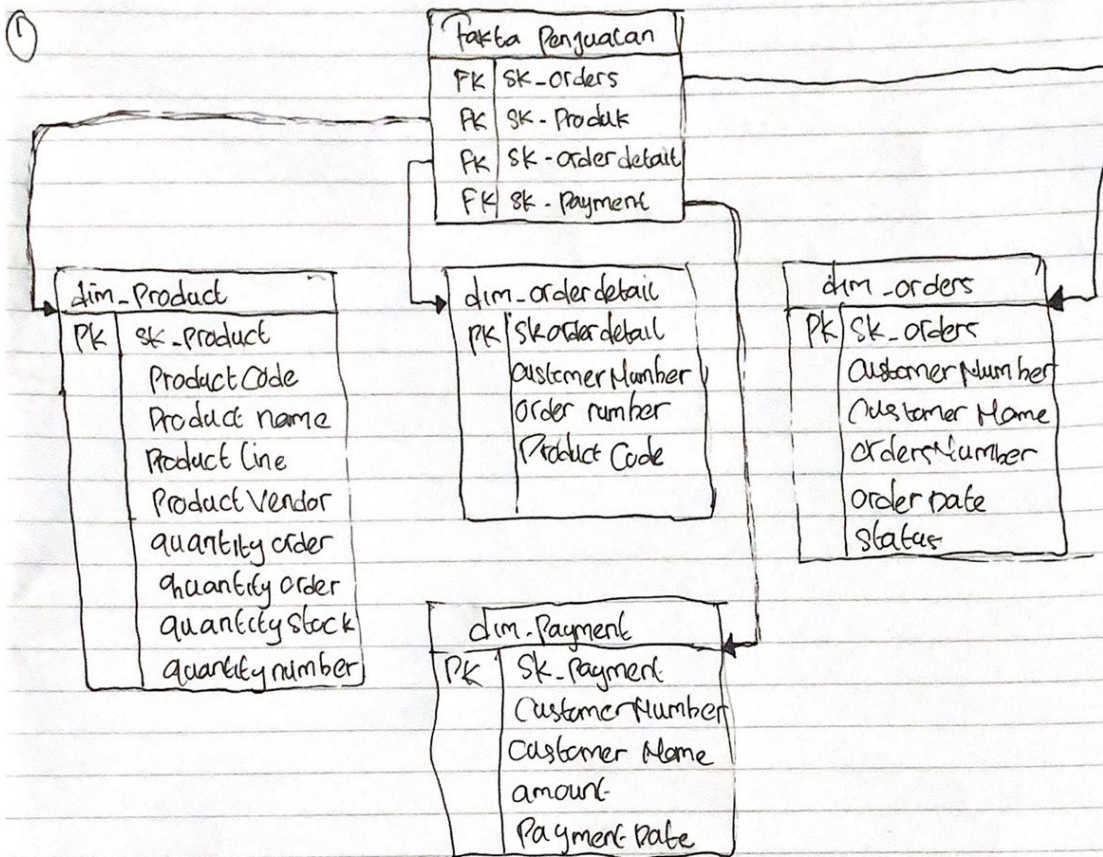 1
Fakta Penjualan
FK SK-orders
FK SK-Produk
FK SK-orderdetail
FK SK-Payment
dim-Product
PK SK-Product
ProductCode
Product name
Product Line
Product Vendor
quantity order
qhuantity order
quantity Stock
quantity number
dim-orderdetail
PK SKorderdetail
CustomerNumber
order number
Product Code
dim-orders
PK SK-orders
CustomerNumber
Customer Name
OrdersNumber
order Date
Status
dim-Payment
PK SK-Payment
CustomerNumber
Customer Name
amount
Payment Date